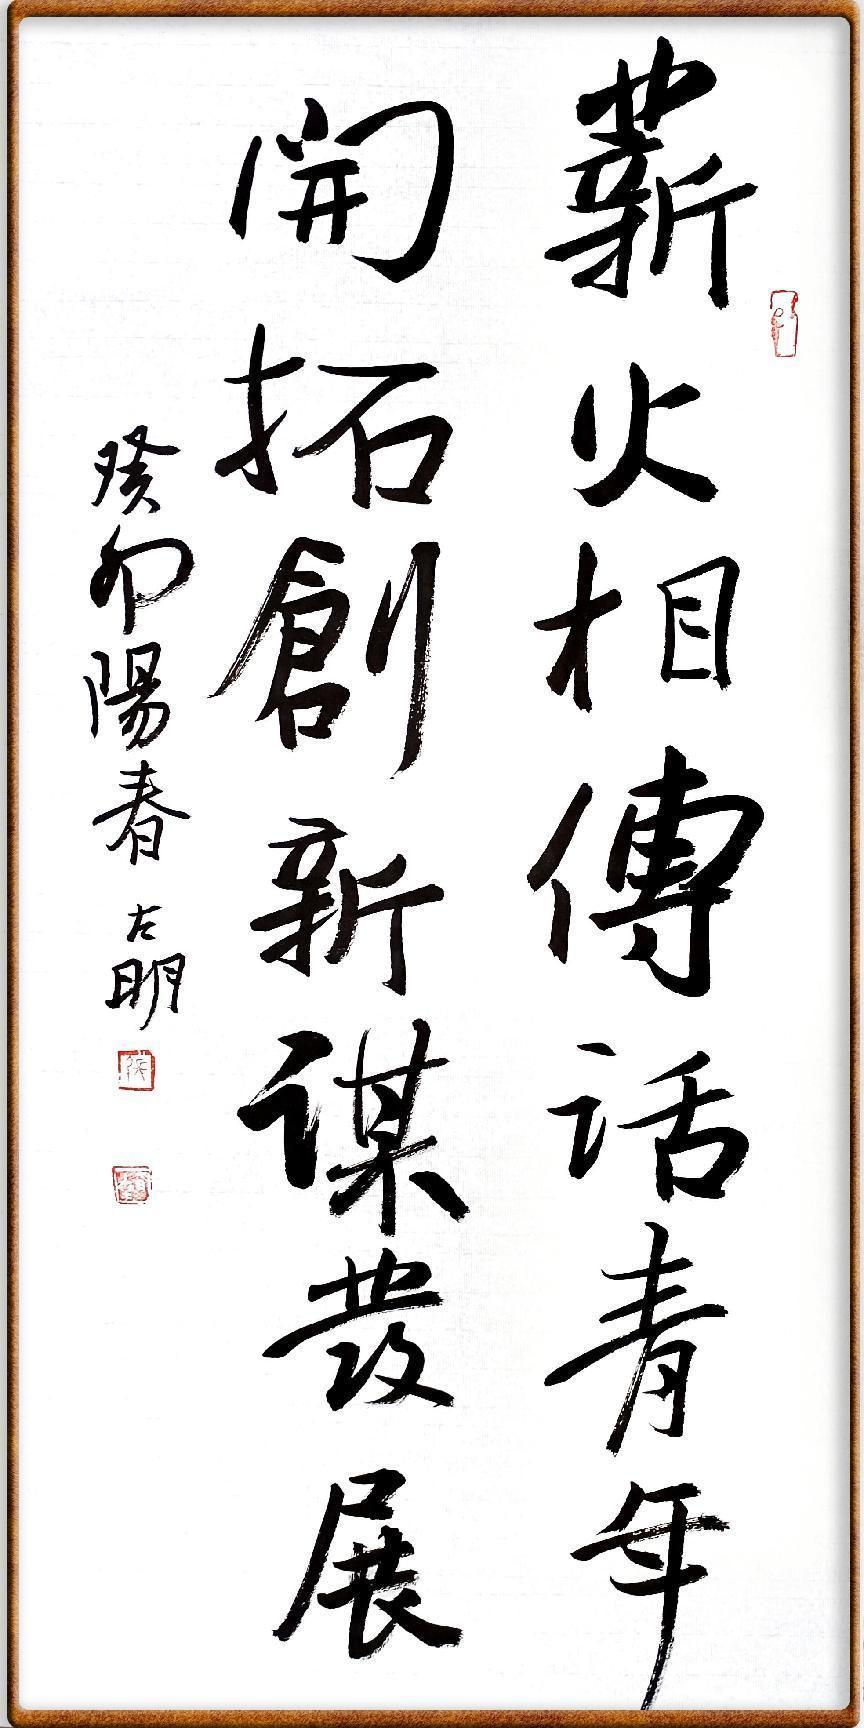 薪火相傳話青年
開拓創新謀發展
癸卯陽春 左明